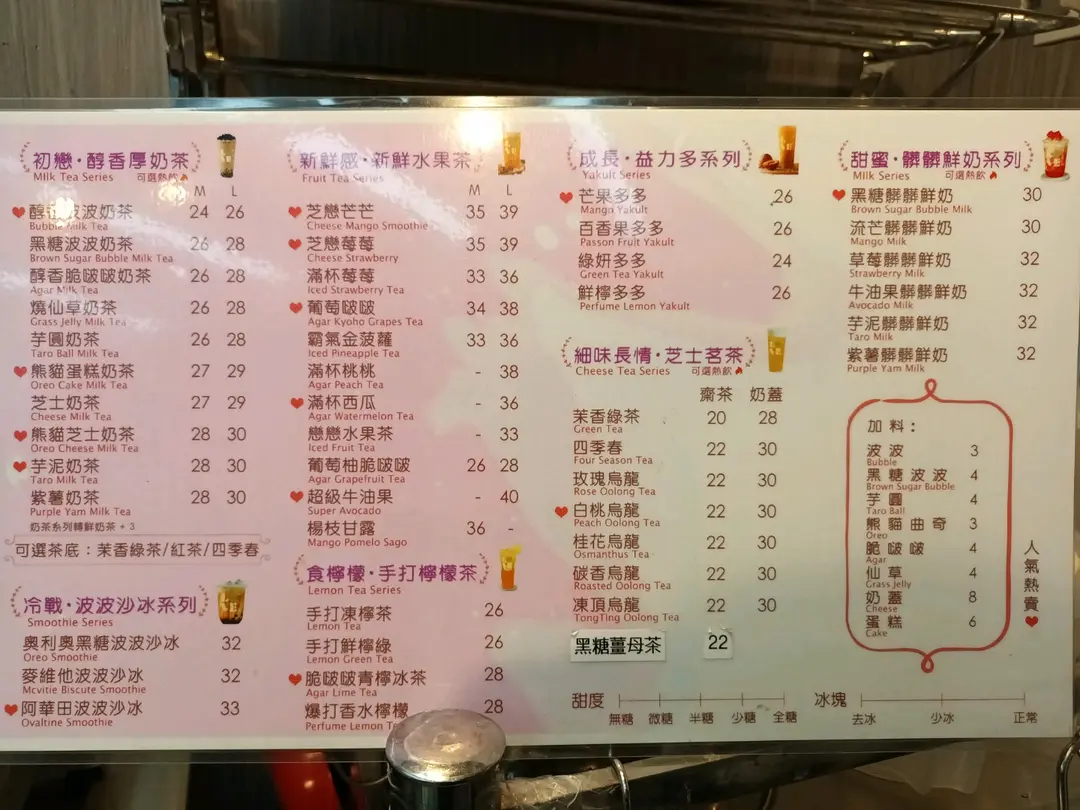 初戀·醇香厚奶茶
Milk Tea Series 可選熱飲
M L
醇香波波奶茶 24 26
Bubble Milk Tea
黑糖波波奶茶 26 28
Brown Sugar Bubble Milk Tea
醇香脆啵啵奶茶 26 28
Agar Milk Tea
燒仙草奶茶 26 28
Grass Jelly Milk Tea
芋圓奶茶 26 28
Taro Ball Milk Tea
熊貓蛋糕奶茶 27 29
Oreo Cake Milk Tea
芝士奶茶 27 29
Cheese Milk Tea
熊貓芝士奶茶 28 30
Oreo Cheese Milk Tea
芋泥奶茶 28 30
Taro Milk Tea
紫薯奶茶 28 30
Purple Yam Milk Tea
奶茶系列轉鮮奶茶 + 3
可選茶底：茉香綠茶/紅茶/四季春
冷戰·波波沙冰系列
Smoothie Series
奧利奧黑糖波波沙冰 32
Oreo Smoothie
麥維他波波沙冰 32
Mcvitie Biscute Smoothie
阿華田波波沙冰 33
Ovaltine Smoothie
新鮮感·新鮮水果茶
Fruit Tea Series
M L
芝戀芒芒 35 39
Cheese Mango Smoothie
芝戀莓莓 35 39
Cheese Strawberry
滿杯莓莓 33 36
Iced Strawberry Tea
葡萄啵啵 34 38
Agar Kyoho Grapes Tea
霸氣金菠蘿 33 36
Iced Pineapple Tea
滿杯桃桃 - 38
Agar Peach Tea
滿杯西瓜 - 36
Agar Watermelon Tea
戀戀水果茶 - 33
Iced Fruit Tea
葡萄柚脆啵啵 26 28
Agar Grapefruit Tea
超級牛油果 - 40
Super Avocado
楊枝甘露 36 -
Mango Pomelo Sago
食檸檬·手打檸檬茶
Lemon Tea Series
手打凍檸茶 26
Lemon Tea
手打鮮檸綠 26
Lemon Green Tea
脆啵啵青檸冰茶 28
Agar Lime Tea
爆打香水檸檬 28
Perfume Lemon Tea
成長·益力多系列
Yakult Series
芒果多多 26
Mango Yakult
百香果多多 26
Passon Fruit Yakult
綠妍多多 24
Green Tea Yakult
鮮檸多多 26
Perfume Lemon Yakult
細味長情·芝士茗茶
Cheese Tea Series 可選熱飲
齋茶 奶蓋
茉香綠茶 20 28
Green Tea
四季春 22 30
Four Season Tea
玫瑰烏龍 22 30
Rose Oolong Tea
白桃烏龍 22 30
Peach Oolong Tea
桂花烏龍 22 30
Osmanthus Tea
碳香烏龍 22 30
Roasted Oolong Tea
凍頂烏龍 22 30
TongTing Oolong Tea
黑糖薑母茶 22
甜度
無糖 微糖 半糖 少糖 全糖
甜蜜·髒髒鮮奶系列
Milk Series 可選熱飲
黑糖髒髒鮮奶 30
Brown Sugar Bubble Milk
流芒髒髒鮮奶 30
Mango Milk
草莓髒髒鮮奶 32
Strawberry Milk
牛油果髒髒鮮奶 32
Avocado Milk
芋泥髒髒鮮奶 32
Taro Milk
紫薯髒髒鮮奶 32
Purple Yam Milk
加料：
波波 3
Bubble
黑糖波波 4
Brown Sugar Bubble
芋圓 4
Taro Ball
熊貓曲奇 3
Oreo
脆啵啵 4
Agar
仙草 4
Grass Jelly
奶蓋 8
Cheese
蛋糕 6
Cake
人氣熱賣
冰塊
去冰 少冰 正常